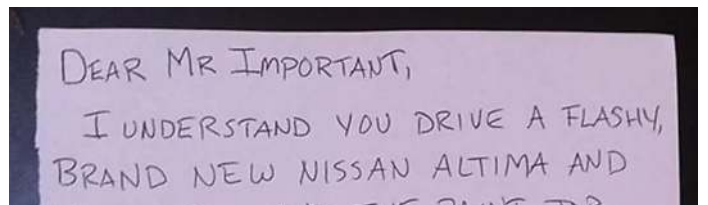 DEAR MR IMPORTANT,
I UNDERSTAND YOU DRIVE A FLASHY,
BRAND NEW NISSAN ALTIMA AND